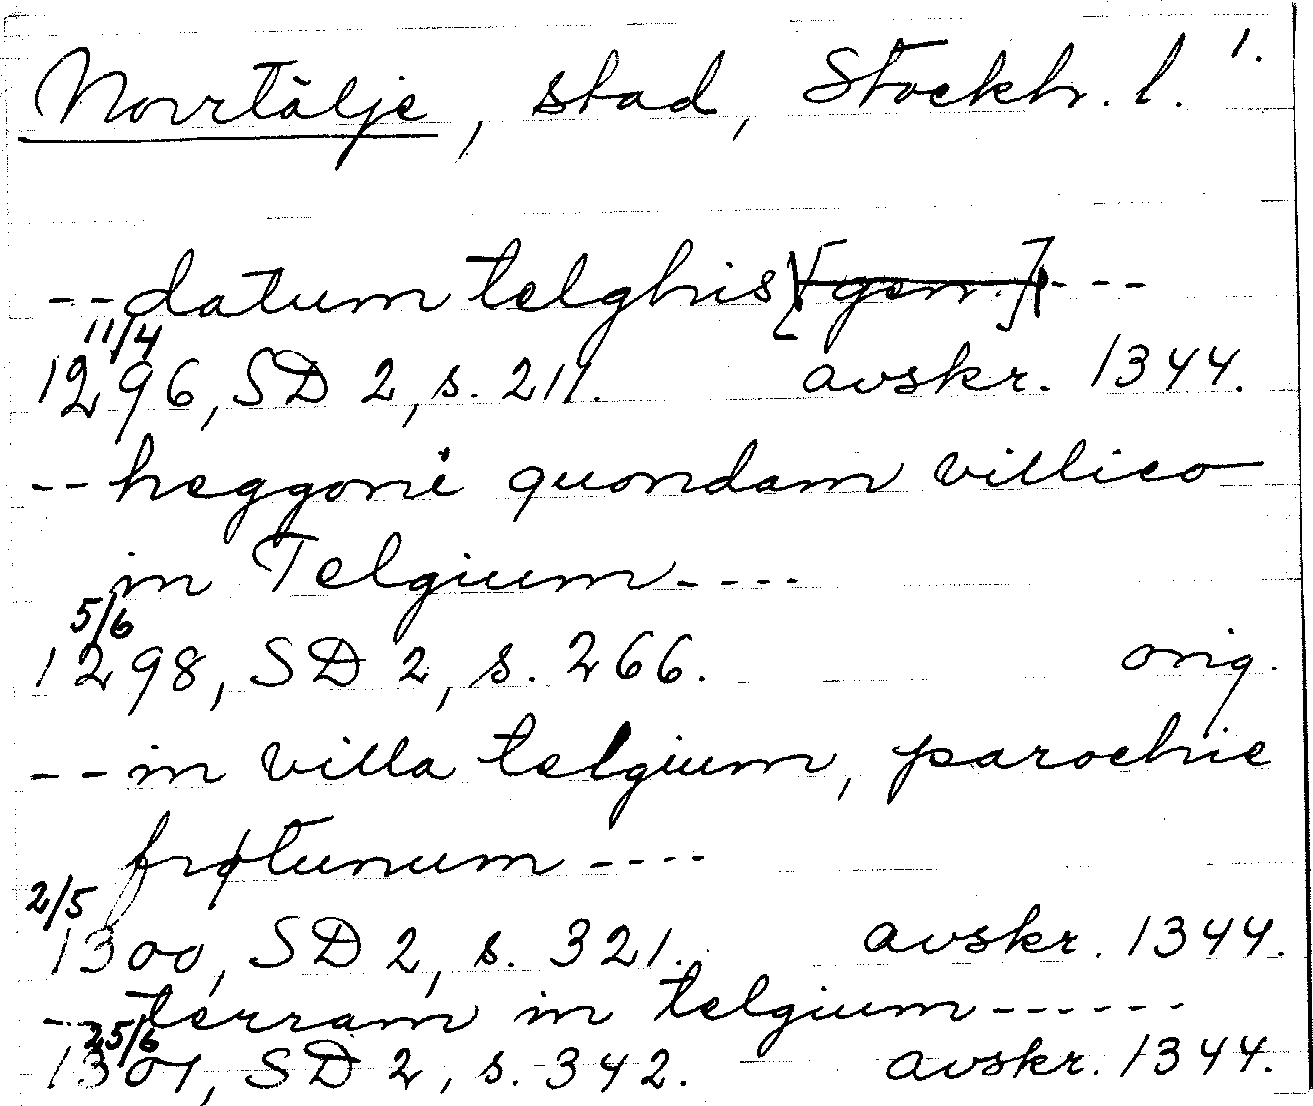 Norrtälje, stad, Stockh. l. 1.
--datum telghis [gen.]----
11/4
1296, SD 2, s. 211. avskr. 1344.
--heggoni quondam villico
in Telgium----
5/6
1298, SD 2, s. 266. orig.
--in villa telgium, parochie
frøtunum----
2/5
1300, SD 2, s. 321. avskr. 1344.
--terram in telgium------
25/6
1301, SD 2, s. 342. avskr. 1344.